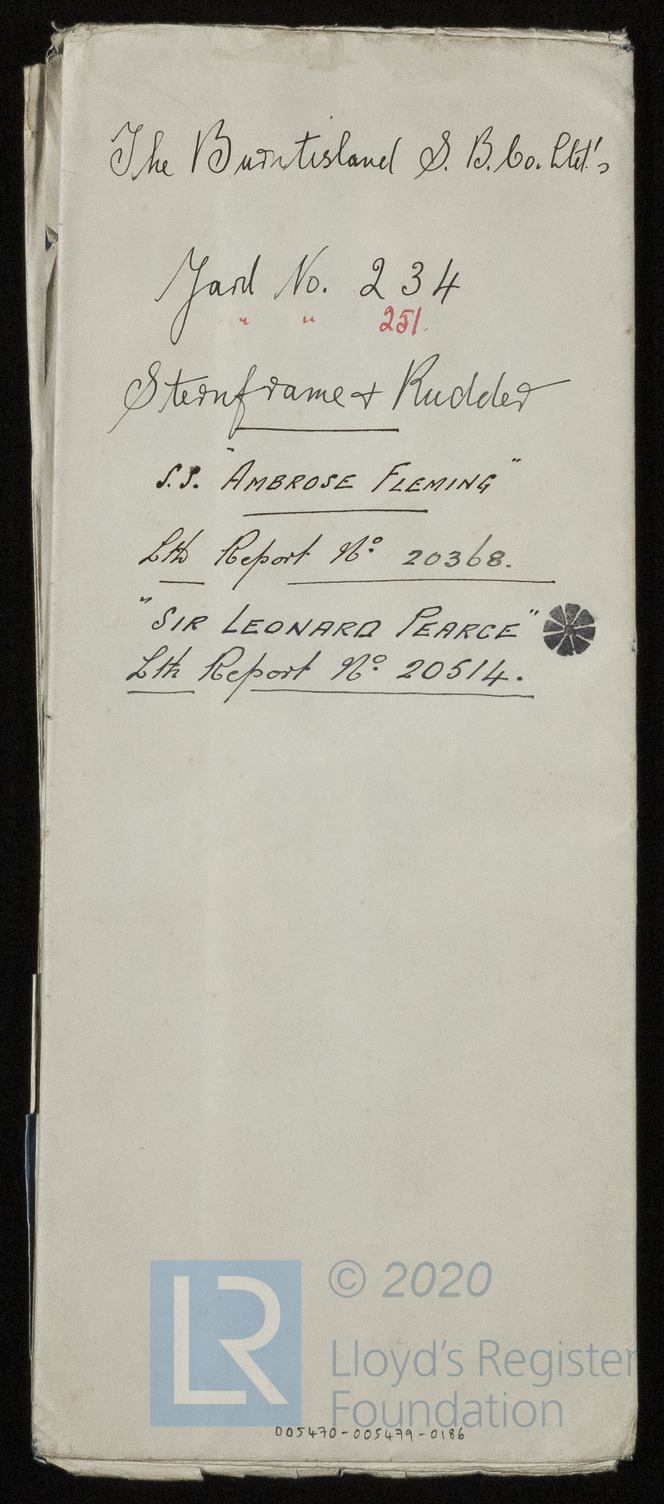 The Burntisland S. B. Co. Ltd's
Yard No. 234
" " 251.
Sternframe & Rudder
S.S. "AMBROSE FLEMING"
Lth Report No 20368.
"SIR LEONARD PEARCE"
Lth Report No 20514.
LR
© 2020
Lloyd's Register
Foundation
005470-005479-0186